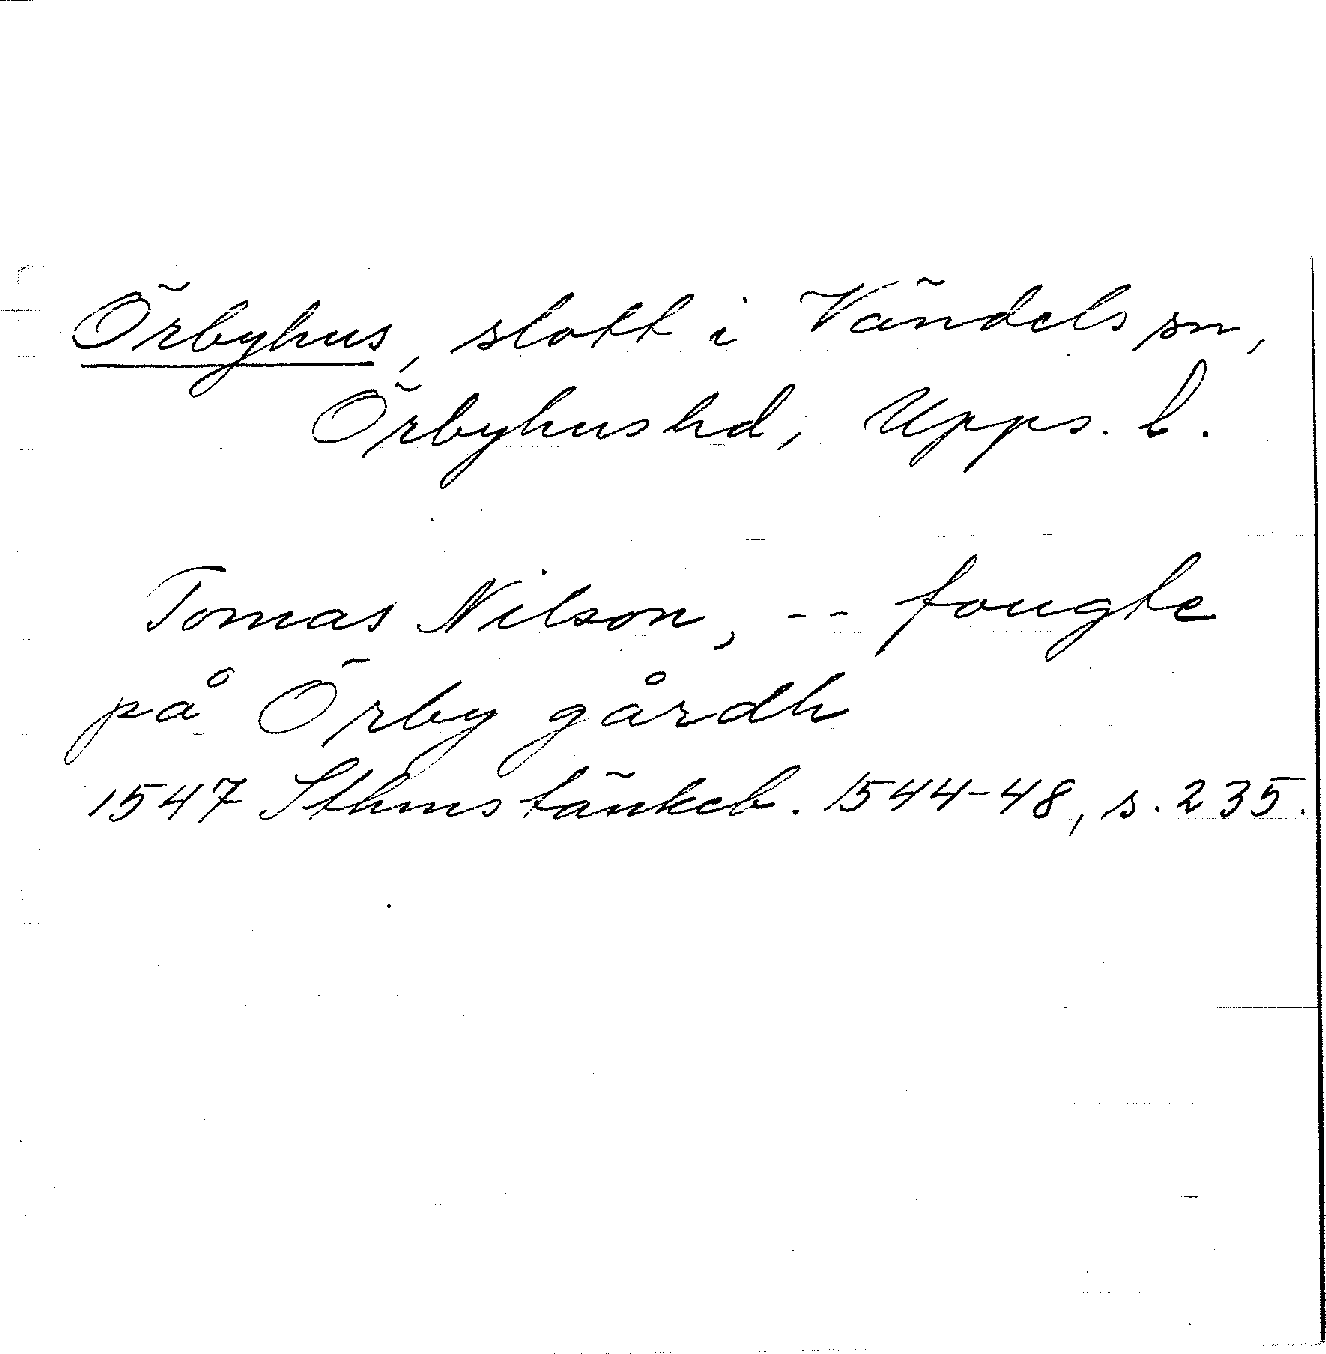 Örbyhus, slott i Vändels sn,
Örbyhus hd, Upps. l.
Tomas Nilson, -- fougte
på Örby gårdh
1547 Sthms tänkeb. 1544-48, s. 235.